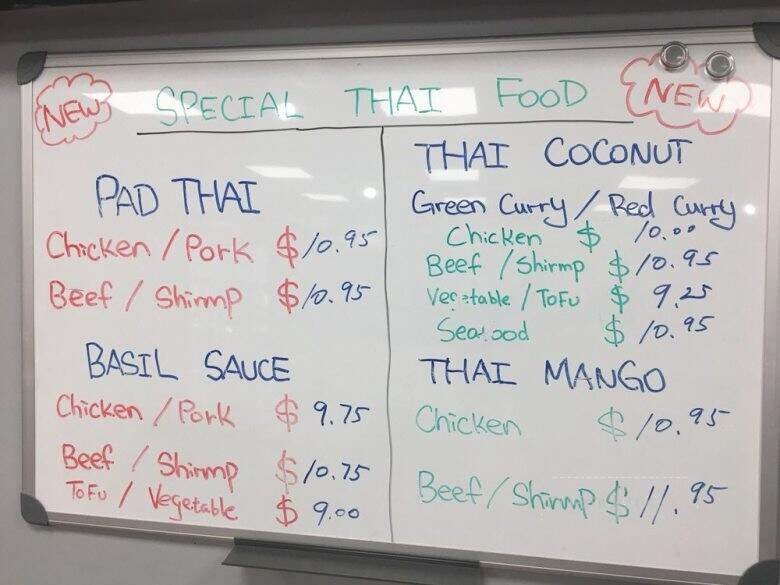 NEW SPECIAL THAI FOOD NEW
PAD THAI
Chicken / Pork $10.95
Beef / Shirmp $10.95
BASIL SAUCE
Chicken / Pork $ 9.75
Beef / Shirmp $10.75
ToFu / Vegetable $ 9.00
THAI COCONUT
Green Curry / Red Curry
Chicken $ 10.00
Beef / Shirmp $10.95
Vegetable / ToFu $ 9.25
Seafood $ 10.95
THAI MANGO
Chicken $10.95
Beef / Shirmp $11.95